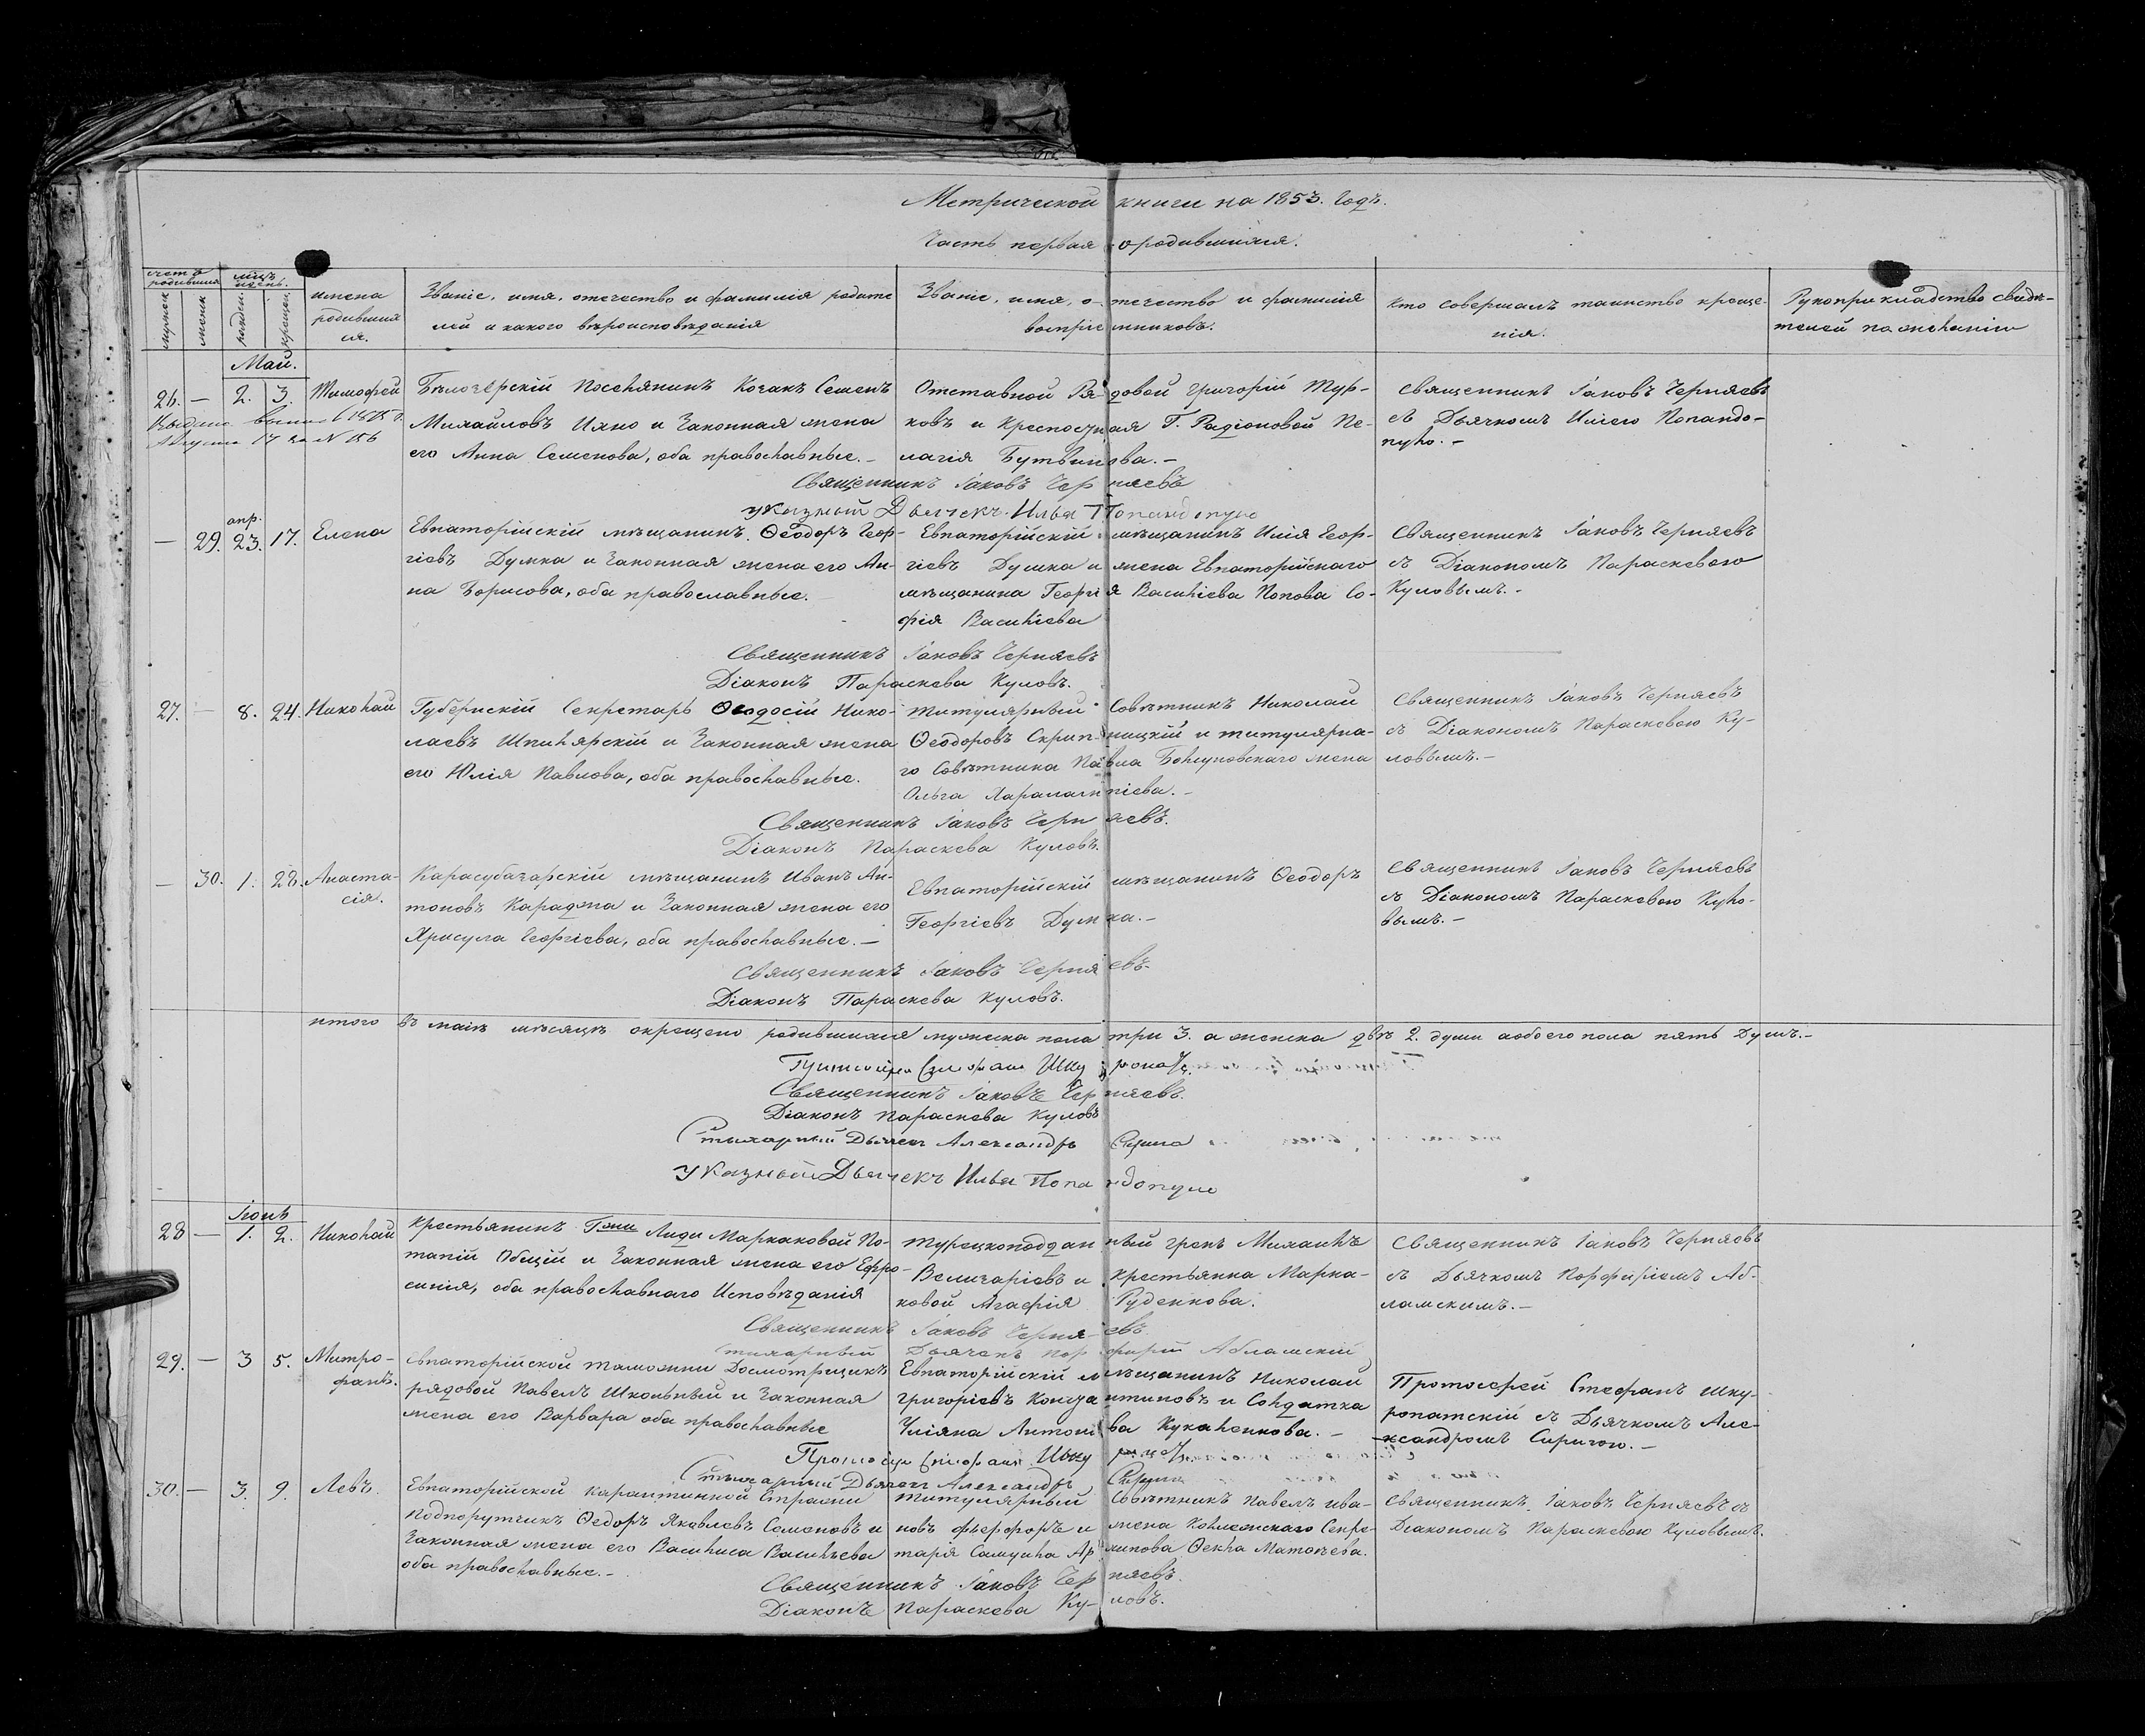 Метрической книги на 1853. Годъ.
Часть первая о родившихся.
счетъ родившихся
мѣцъ и день.
имена родившихся.
Званіе, имя, отечество и фамилія родителей и какого вѣроисповѣданія
Званіе, имя, отечество и фамилія воспріемниковъ.
Кто совершалъ таинство крещенія.
Рукоприкладство свидѣтелей по желанію
мужеск
женск
рожден.
крещен.
Май.
26. — 2. 3. Тимофей
Выдана
Августа 17 за N 156
Бѣлозерскій Поселянинъ Козакъ Семенъ
Михайловъ Ихно и Законная жена
его Анна Семенова, оба православные. —
Отставной Рядовой Григорій Тур-
ковъ и Крепостная Г. Радіоновой Пе-
лагія Бутвинова. —
Священникъ Іаковъ Черняевъ
съ Дьячкомъ Иліею Попандо-
пуло. —
Священникъ Іаковъ Черняевъ
указной Дьячекъ Илья Попандопуло
— 29. апр. 23. 17. Елена
Евпаторійскій мѣщанинъ Ѳеодоръ Геор-
гіевъ Думка и Законная жена его Ан-
на Борисова, оба православные. —
Евпаторійскій мѣщанинъ Илія Геор-
гіевъ Думка и жена Евпаторійскаго
мѣщанина Георгія Васильева Попова Со-
фія Васильева
Священникъ Іаковъ Черняевъ
съ Діакономъ Параскевою
Куловымъ. —
Священникъ Іаковъ Черняевъ
Діаконъ Параскева Куловъ.
27. — 8. 24. Николай
Губернскій Секретарь Ѳеодосій Нико-
лаевъ Шпилярскій и Законная жена
его Юлія Павлова, оба православные.
Титулярный Совѣтникъ Николай
Ѳеодоровъ Скрипницкій и титулярна-
го Совѣтника Павла Богуновскаго жена
Ольга Харалампіева. —
Священникъ Іаковъ Черняевъ
съ Діакономъ Параскевою Ку-
ловымъ. —
Священникъ Іаковъ Черняевъ.
Діаконъ Параскева Куловъ.
— 30. 1. 28. Анаста-
сія.
Карасубазарскій мѣщанинъ Иванъ Ан-
тоновъ Караджа и Законная жена его
Хрисула Георгіева, оба православные. —
Евпаторійскій мѣщанинъ Ѳеодоръ
Георгіевъ Думка. —
Священникъ Іаковъ Черняевъ
съ Діакономъ Параскевою Куло-
вымъ. —
Священникъ Іаковъ Черняевъ.
Діаконъ Параскева Куловъ.
итого въ маіѣ мѣсяцѣ окрещено родившихся мужеска пола три 3. а женска двѣ 2. души а обоего пола пять Душъ. —
Священникъ Іаковъ Черняевъ.
Діаконъ Параскева Куловъ
Стихарный Дьячекъ Александръ
указной Дьячекъ Илья Попандопуло
Іюнь
28 — 1. 2. Николай
Крестьянинъ Гжи Лиди Маркаковой По-
тапій Общій и Законная жена его Ефро-
синія, оба православнаго Исповѣданія
Турецкоподданный грекъ Михаилъ
Величаріевъ и Крестьянка Марка-
ковой Агафія Руденкова.
Священникъ Іаковъ Черняевъ
съ Дьячкомъ Порфиріемъ Аб-
ламскимъ. —
Священникъ Іаковъ Черняевъ
стихарный Дьячекъ Порфирій Абламскій
29. — 3 5. Митро-
фанъ.
Евпаторійской таможни Досмотрщикъ
рядовой Павелъ Школьный и Законная
жена его Варвара оба православные
Евпаторійскій мѣщанинъ Николай
Григоріевъ Константиновъ и Солдатка
Уліяна Антонова Кукаленкова. —
Протоіерей Стефанъ Шку-
ропатскій съ Дьячкомъ Але-
ксандромъ Сиричою. —
Стихарный Дьячекъ Александръ
30. — 3. 9. Левъ.
Евпаторійской Карантинной Стражи
Подпоручикъ Ѳедоръ Яковлевъ Семеновъ и
Законная жена его Василиса Васильева
оба православные. —
Титулярный Совѣтникъ Павелъ Ива-
новъ Фьерфортъ и жена Коллежскаго Секре-
таря Самуила Архипова Ѳекла Матвѣева.
Священникъ Іаковъ Черняевъ съ
Діакономъ Параскевою Куловымъ.
Священникъ Іаковъ Черняевъ.
Діаконъ Параскева Куловъ.